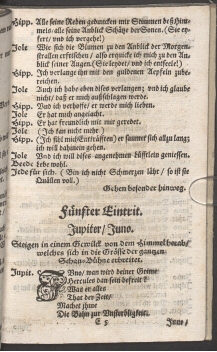 Hipp. Alle seine Reden geduncken mir Stimmen deß Him-
mels: alle seine Anblick Schätz der Sonen. (Sie ey-
fert/ und ich vergehe!)
Jole Wie sich die Blumen zu den Anblick der Morgen-
strallen erfrischen / also erquicke ich mich zu den An-
blick seiner Augen. (Sie leydet/ und ich entseele!)
Hipp. Ich verlange ihn mit den guldenen Aepflen zube-
reichen.
Jole Auch ich habe eben dises verlangen; und ich glaube
nicht/ daß er mich ausschlagen werde.
Hipp. Und ich verhoffe/ er werde mich lieben.
Jole Er hat mich angelacht.
Hipp. Er hat freundlich mit mir geredet.
Jole (Ich kan nicht mehr)
Hipp. er saumet sich allzu lang;
ich will dahinten gehen.
Jole Und ich will dises angenehmen geniessen.
lebe wohl.
Jede für sich. (Bin ich nicht Schmerzen satt / so ist sie
Quallen voll.)
Gehen besonder hinweg.
Fünfter Eintrit.
Jupiter/ Juno.
Steigen in einem Gewilck von dem Himmel herab/
welches sich in die Grösse der gantzen
Schau-Bühne erbreitet.
Jupit. Juno/ wan wird deiner Grimm
Hercules dan sein befreit?
Was er allen
That der Zeit/
Machet ihme
Die Bahn zur Unsterbligkeit.
E 5 Juno/